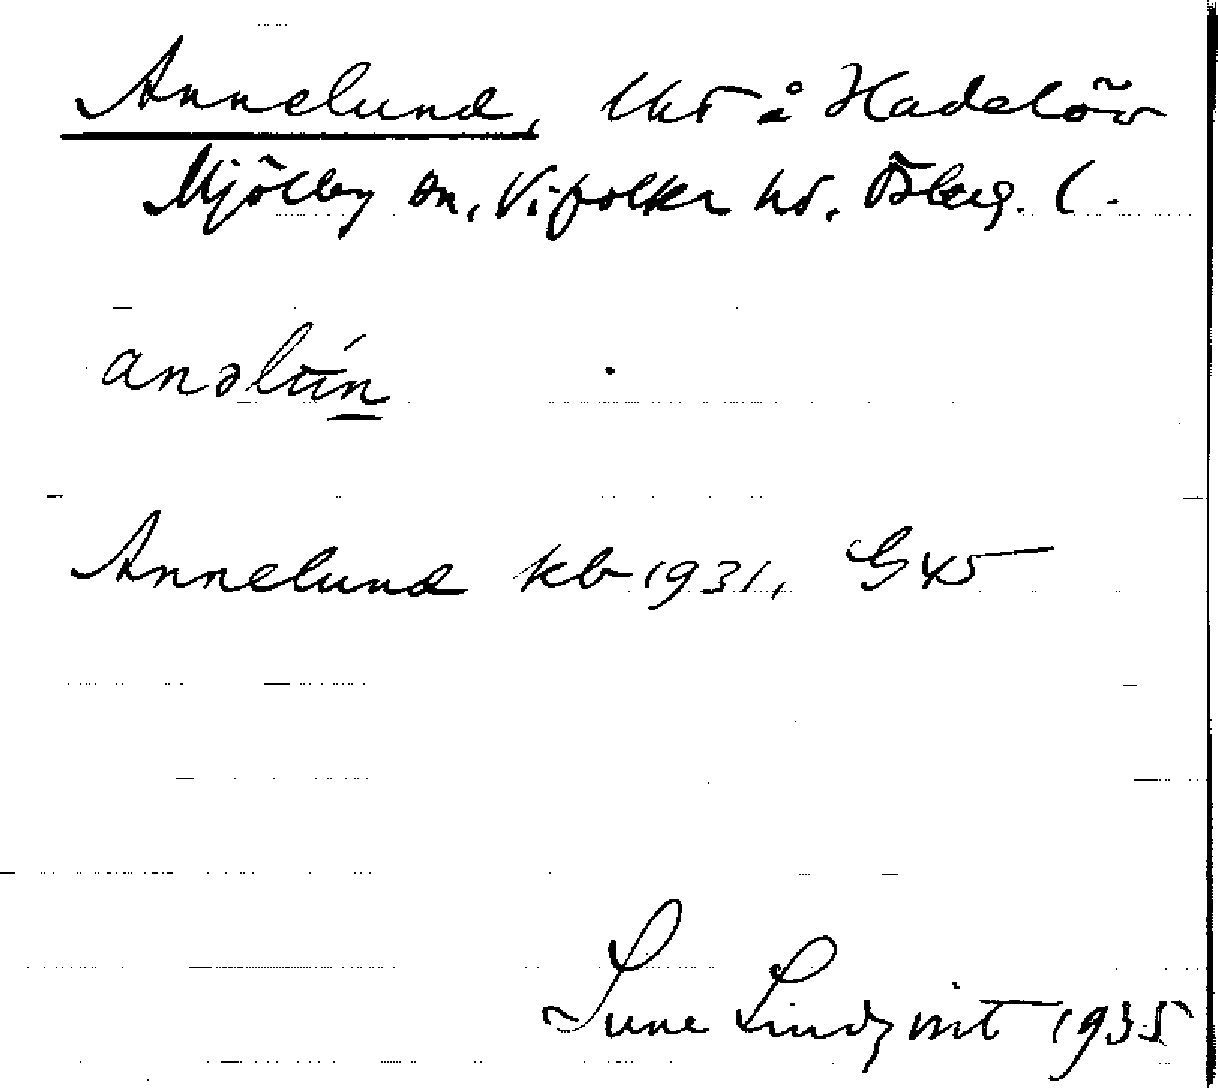 Annelund, lht å Hadelöv
Mjölby sn, Vifolka hd. Österg. l.
anəlún
Annelund kb 1931, G45
Sune Lindqvist 1935